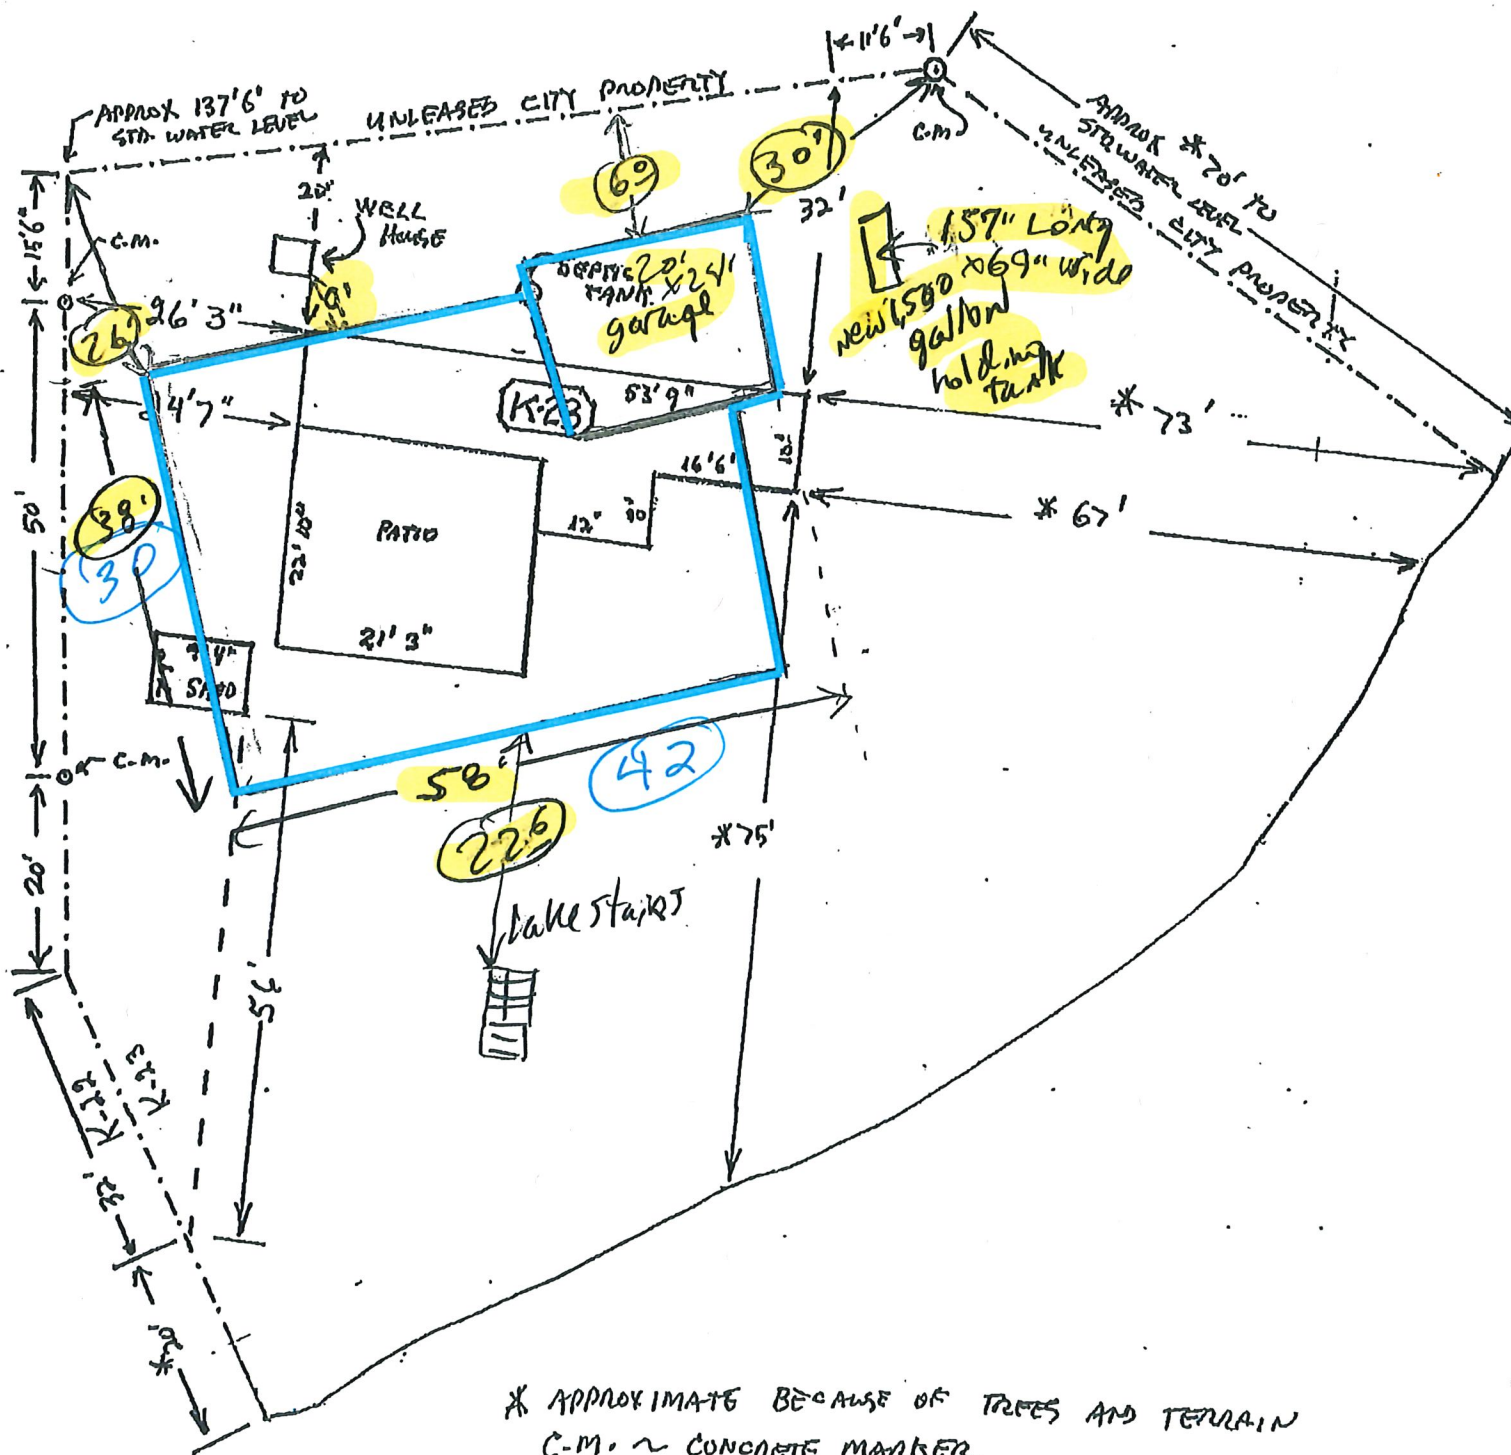 11'6"
APPROX 137'6" TO
STD. WATER LEVEL
UNLEASED CITY PROPERTY
C.M.
APPROX *70' TO
STD WATER LEVEL
UNLEASED CITY PROPERTY
15'6"
C.M.
20'
WELL
HOUSE
6º
30'
32'
157" Long
x69" wide
new 1,500
gallon
holding
tank
SEPTIC
TANK
20'
x24'
garage
26'3"
9'
26'
4'7"
K-23
53'9"
* 73'
50'
38'
30
22'10"
PATIO
12'
10'
16'6"
10'
* 67'
21'3"
9'4"
SHED
C.M.
58'
42
22 6
*75'
20'
Lake Stairs
56'
K-22
K-23
32'
*20'
* APPROXIMATE BECAUSE OF TREES AND TERRAIN
C.M. ~ CONCRETE MARKER